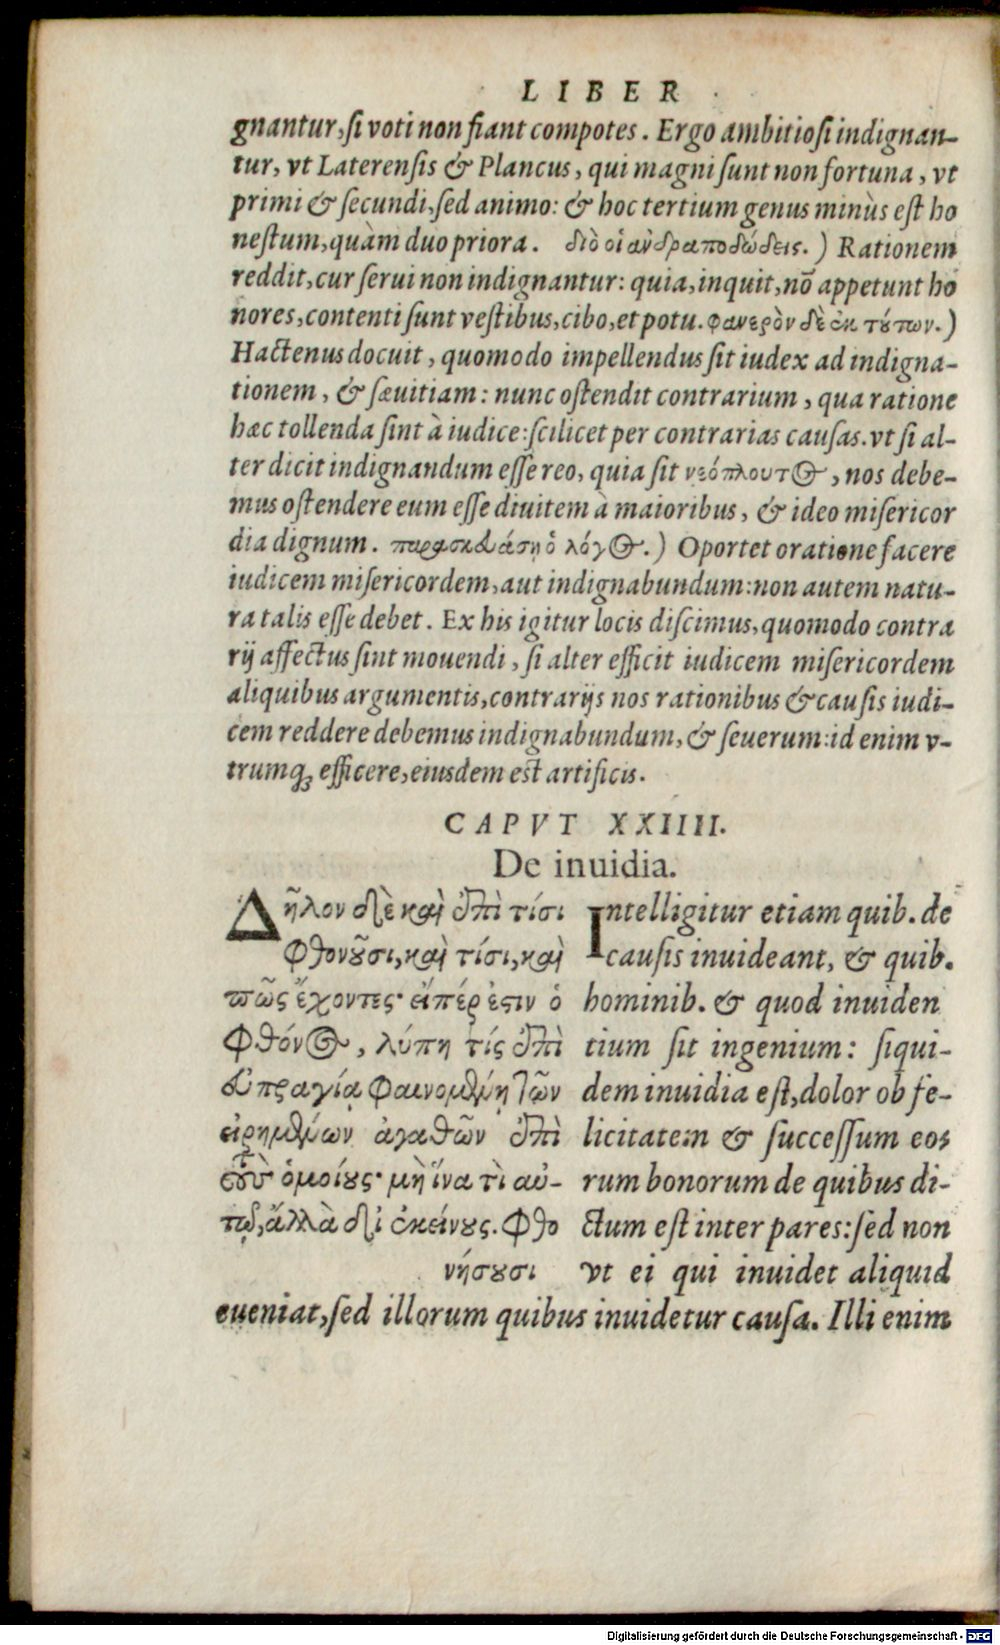 LIBER
gnantur, si voti non fiant compotes. Ergo ambitiosi indignan-
tur, vt Laterensis & Plancus, qui magni sunt non fortuna, vt
primi & secundi, sed animo: & hoc tertium genus minùs est ho
nestum, quàm duo priora. διὸ οἱ ἀνδραποδώδεις.) Rationem
reddit, cur serui non indignantur: quia, inquit, nō appetunt ho
nores, contenti sunt vestibus, cibo, et potu. φανερὸν δὲ ἐκ τύπων.)
Hactenus docuit, quomodo impellendus sit iudex ad indigna-
tionem, & sæuitiam: nunc ostendit contrarium, qua ratione
hæc tollenda sint à iudice: scilicet per contrarias causas. vt si al-
ter dicit indignandum esse reo, quia sit νεόπλουτος, nos debe-
mus ostendere eum esse diuitem à maioribus, & ideo misericor
dia dignum. παρασκευάσῃ ὁ λόγος.) Oportet oratione facere
iudicem misericordem, aut indignabundum: non autem natu-
ra talis esse debet. Ex his igitur locis discimus, quomodo contra
rij affectus sint mouendi, si alter efficit iudicem misericordem
aliquibus argumentis, contrarijs nos rationibus & causis iudi-
cem reddere debemus indignabundum, & seuerum: id enim v-
trumq; efficere, eiusdem est artificis.
CAPVT XXIIII.
De inuidia.
Δῆλον δὲ καὶ ἐπὶ τίσι
φθονοῦσι, καὶ τίσι, καὶ
πῶς ἔχοντες· εἴπέρ ἐστιν ὁ
φθόνος, λύπη τὶς ἐπὶ
εὐπραγίᾳ φαινομένῃ τῶν
εἰρημένων ἀγαθῶν ἐπὶ
τοὺς ὁμοίους· μὴ ἵνα τὶ αὐ-
τῷ, ἄλλὰ δι ἐκείνους. Φθο
νήσουσι
Intelligitur etiam quib. de
causis inuideant, & quib.
hominib. & quod inuiden
tium sit ingenium: siqui-
dem inuidia est, dolor ob fe-
licitatem & successum eo-
rum bonorum de quibus di-
ctum est inter pares: sed non
vt ei qui inuidet aliquid
eueniat, sed illorum quibus inuidetur causa. Illi enim
Digitalisierung gefördert durch die Deutsche Forschungsgemeinschaft - DFG